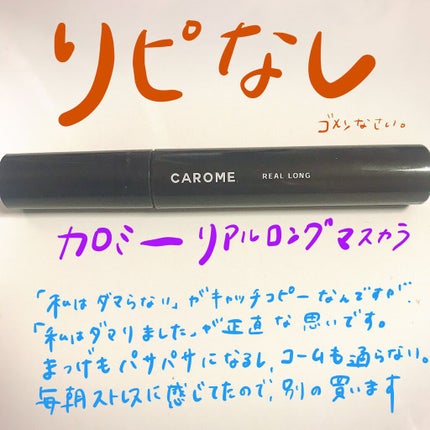 リピなし
ゴメンなさい。
CAROME REAL LONG
カロミー リアルロングマスカラ
「私はダマらない」がキャッチコピーなんですが、
「私はダマりました」が正直な思いです。
まつげもパサパサになるし、コームも通らない。
毎朝ストレスに感じてたので、別の買います